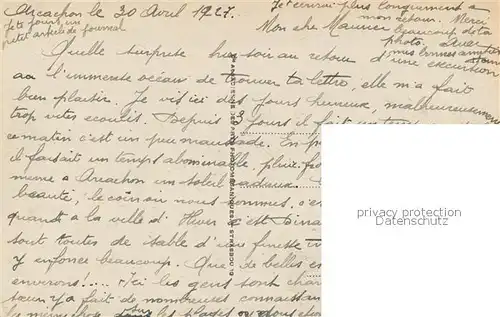 Arcachon le 30 Avril 1927.
Je t'écrirai plus longuement à
mon retour. Merci
Mon cher Maurice beaucoup de ta
photo. Avec
mes bonnes amitiés
petit article de journal
Quelle surprise hier soir au retour d'une excursion
à l'immense océan de trouver ta lettre, elle m'a fait
bien plaisir. Je vis ici des jours heureux, malheureusement
trop vites écoulés. Depuis 3 jours il fait un
ce matin c'est un peu maussade. En
il faisait un temps abominable, pluie,
même à Arcachon un soleil radieux.
beauté, le coin où nous sommes,
quand à la ville d'Hiver c'est
sont toutes de sable d'une finesse
y enfonce beaucoup. Que de belles
environs!.... Ici les gens sont
sœur y a fait de nombreuses
les plages ou
privacy protection
Datenschutz